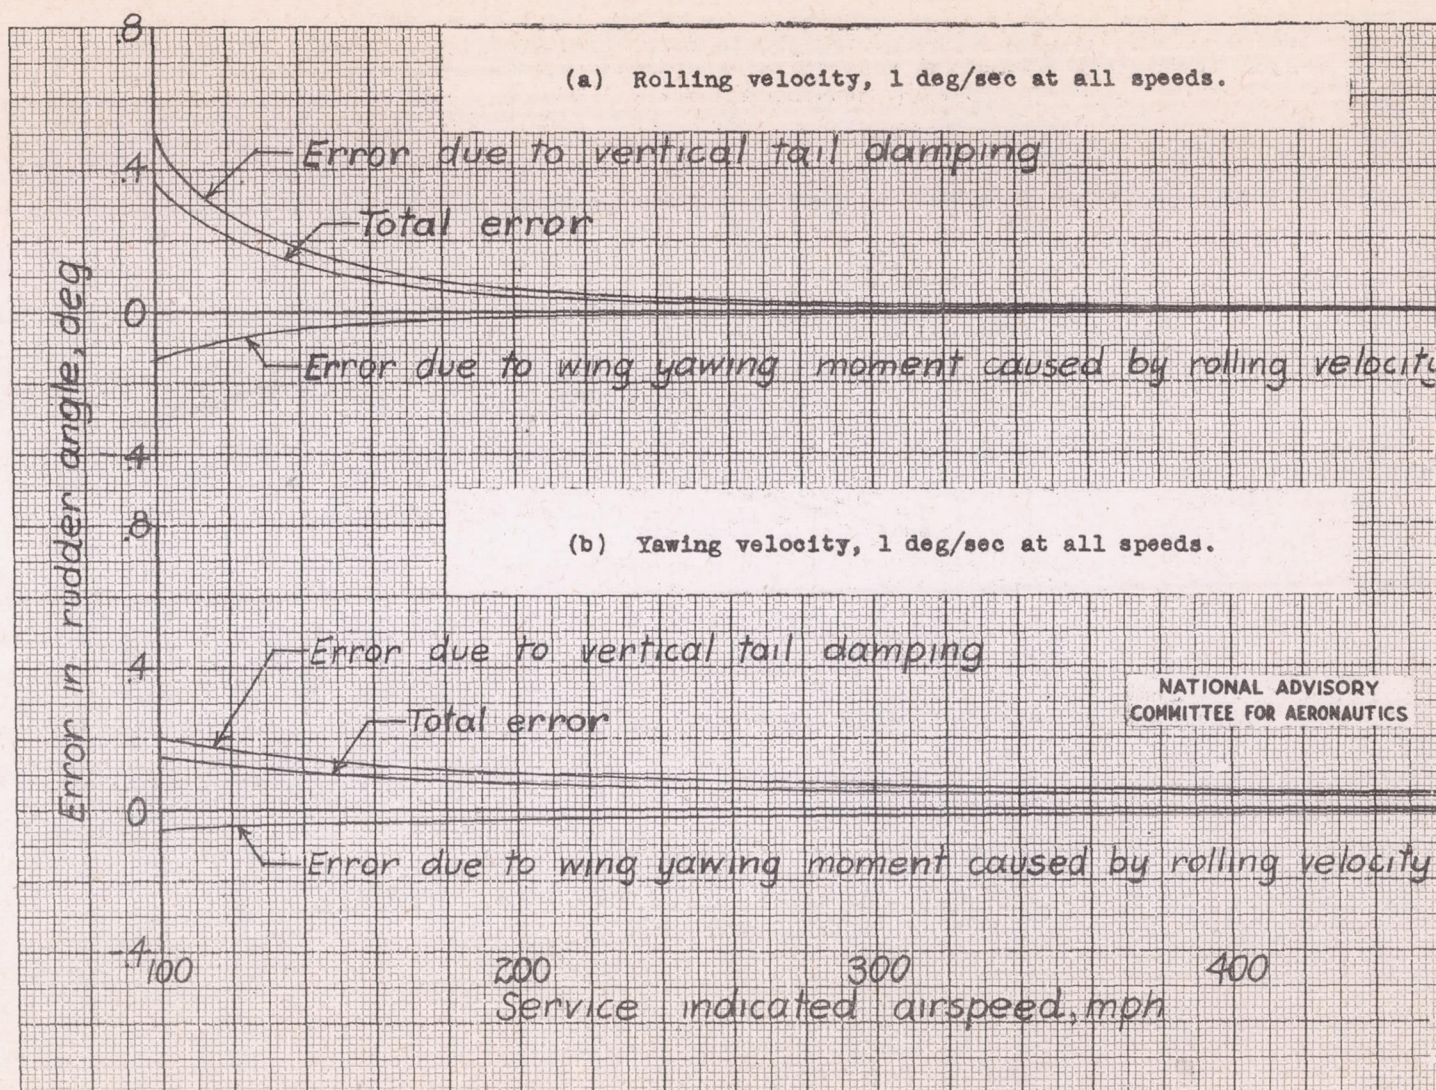 .8
(a) Rolling velocity, 1 deg/sec at all speeds.
Error due to vertical tail damping
.4
Total error
0
Error due to wing yawing moment caused by rolling velocity
-.4
Error in rudder angle, deg
.8
(b) Yawing velocity, 1 deg/sec at all speeds.
Error due to vertical tail damping
.4
NATIONAL ADVISORY
COMMITTEE FOR AERONAUTICS
Total error
0
Error due to wing yawing moment caused by rolling velocity
-.4
100 200 300 400
Service indicated airspeed, mph